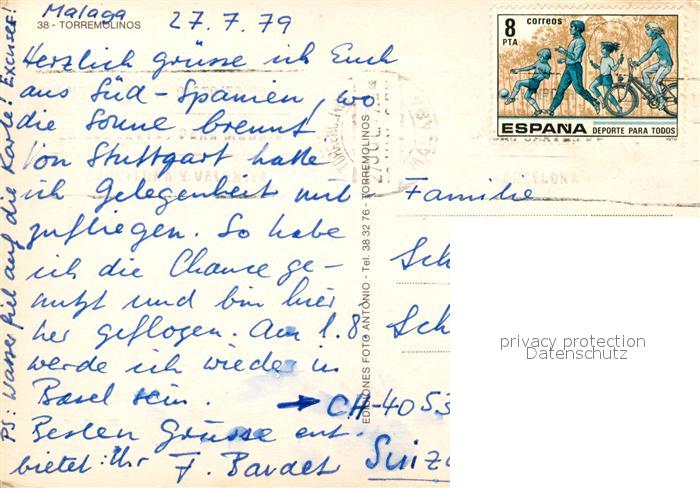 Malaga 27.7.79
38 - TORREMOLINOS
Herzlich grüsse ich Euch
aus Süd-Spanien, wo
die Sonne brennt.
Von Stuttgart hatte
ich Gelegenheit mit
zufliegen. So habe
ich die Chance ge-
nutzt und bin hier
her geflogen. Am 1.8.
werde ich wieder in
Basel sein.
Besten Grüsse ent-
bietet: Ihr F. Bardet
PS: Wasser fiel auf die Karte! Excuser!
EDICIONES FOTO ANTONIO - Tel. 38 32 76 - TORREMOLINOS
8 correos
PTA
ESPAÑA DEPORTE PARA TODOS
1979
Familie
Sch
Sch
→ CH-4053
Suiz
privacy protection
Datenschutz